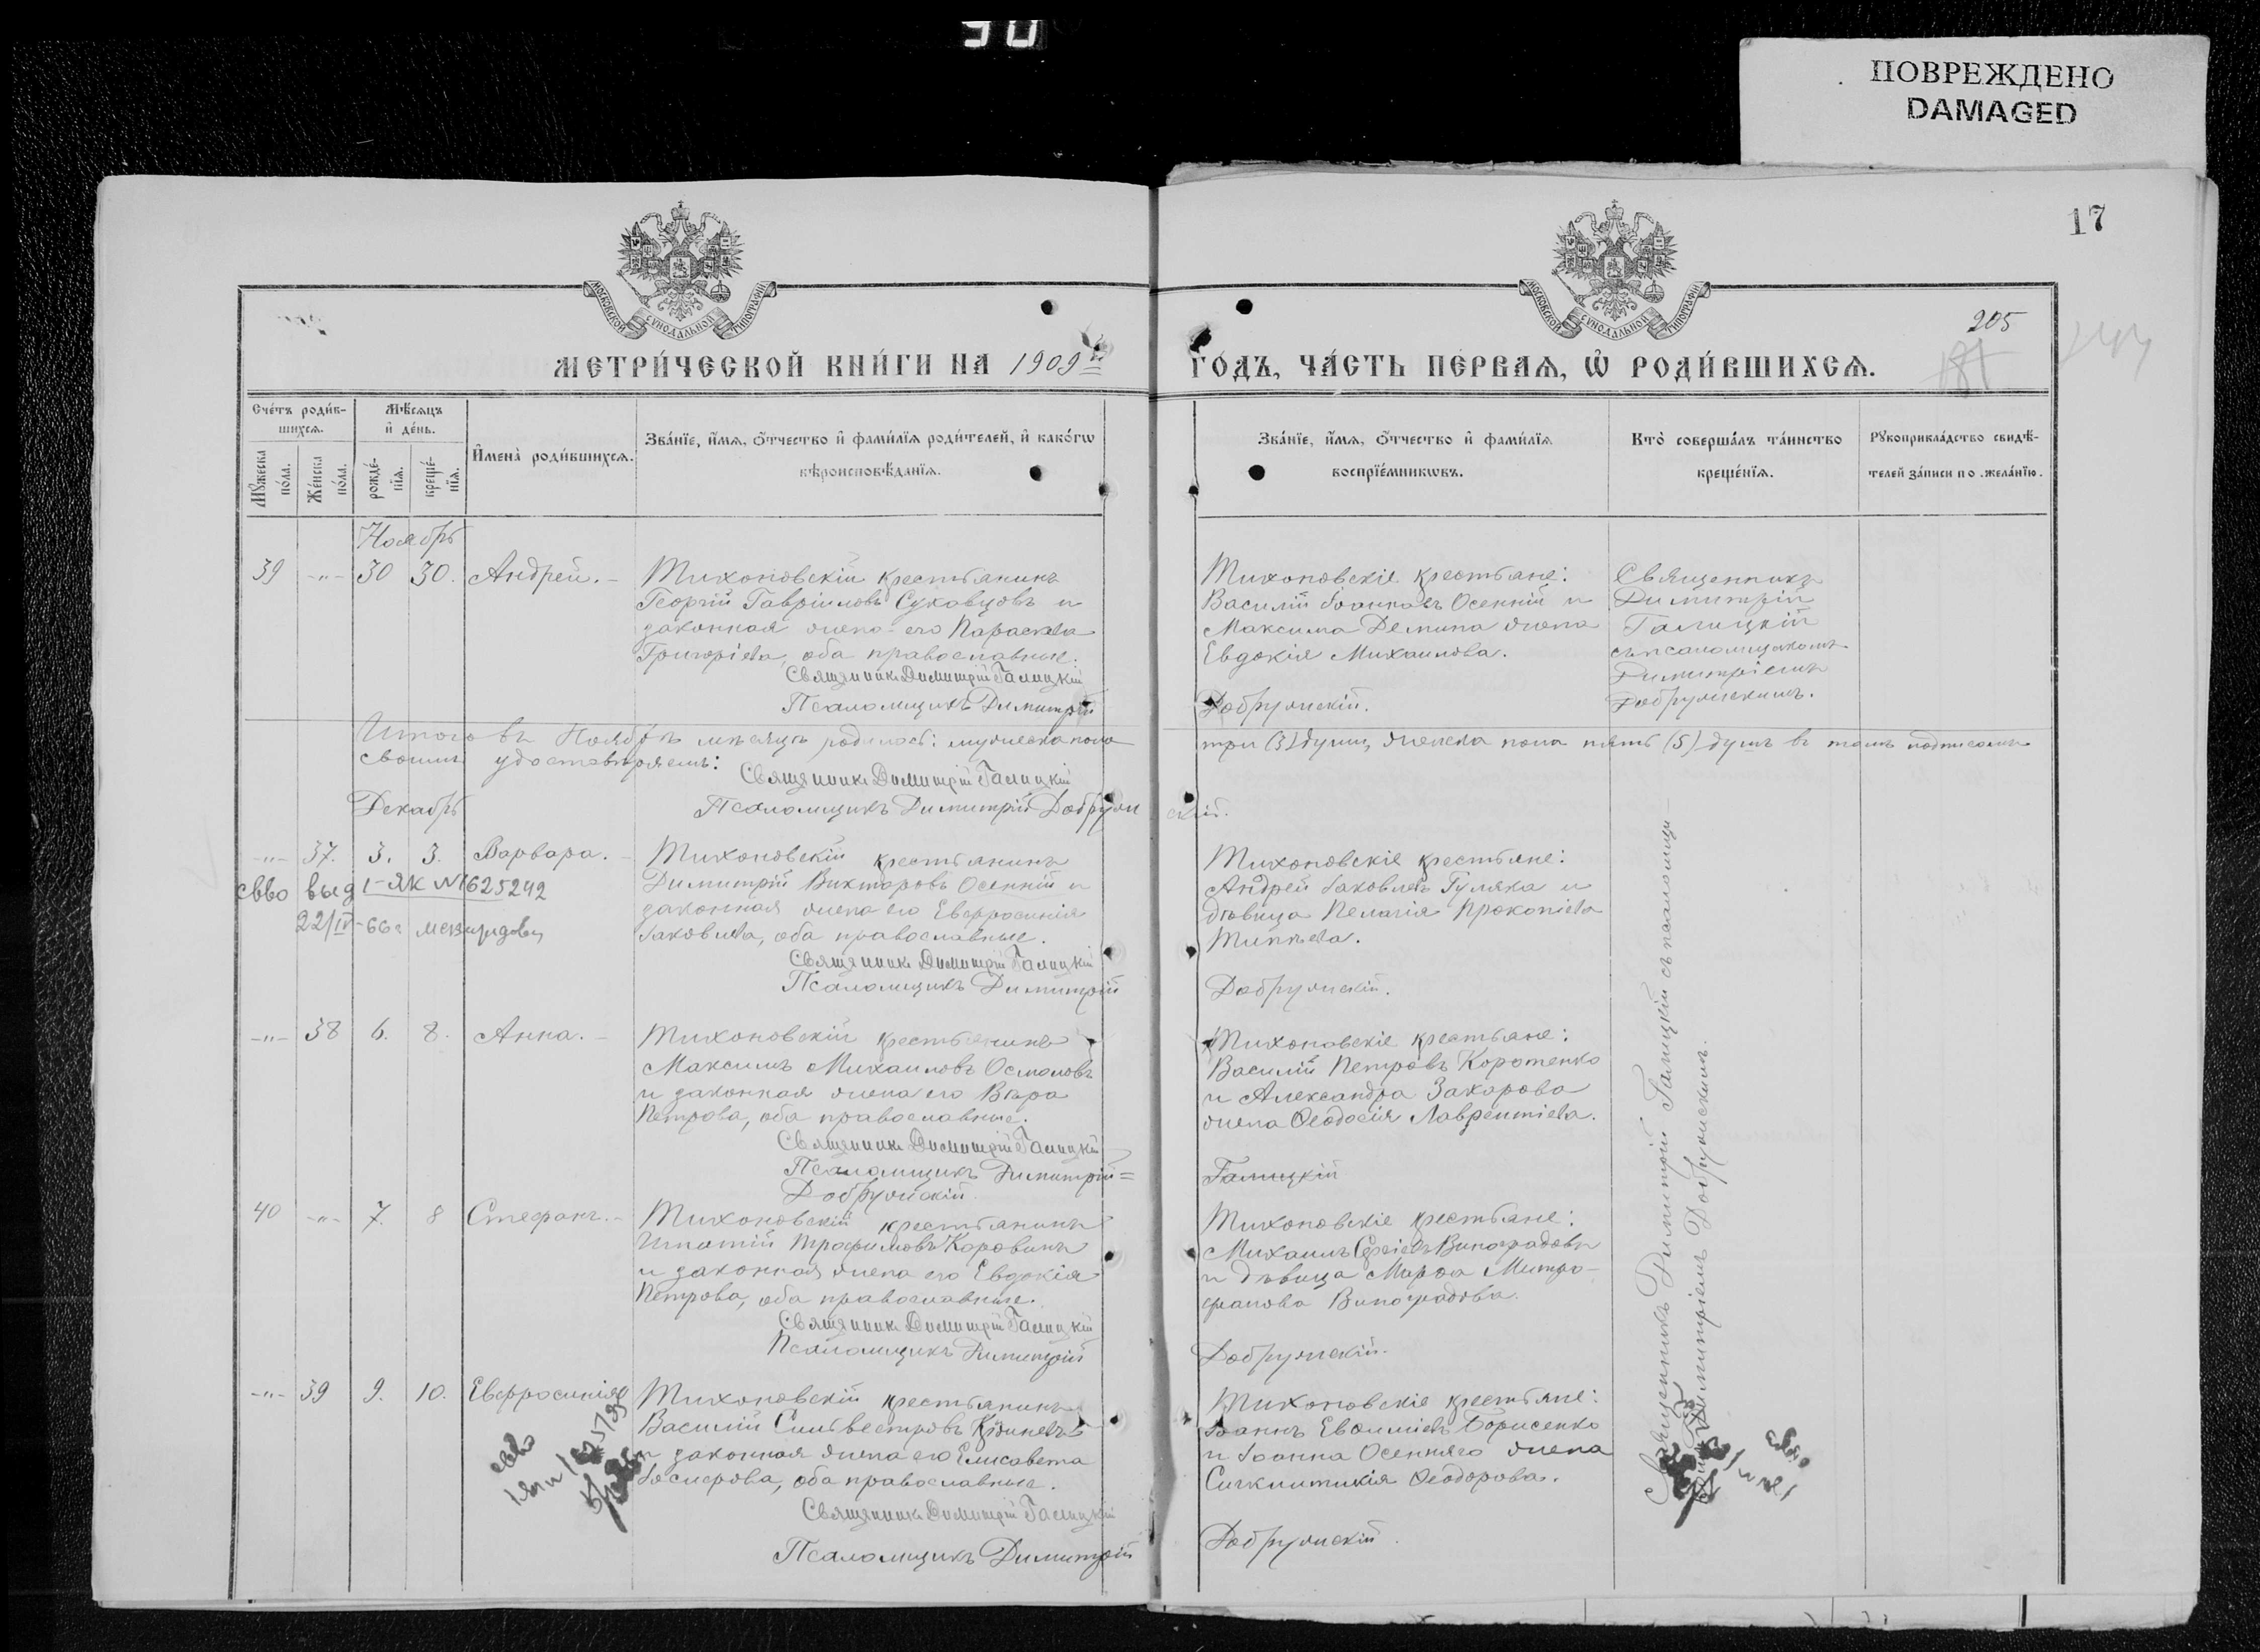 ПОВРЕЖДЕНО
DAMAGED
17
205
МОСКОВСКОЙ СѴНОДАЛЬНОЙ ТИПОГРАФІИ
МОСКОВСКОЙ СѴНОДАЛЬНОЙ ТИПОГРАФІИ
МЕТРИ́ЧЕСКОЙ КНИ́ГИ НА 1909й
ГО́ДЪ, ЧА́СТЬ ПЕ́РВАѦ, Ѡ҆ РОДИ́ВШИХСѦ.
Сче́тъ роди́в-
шихсѧ.
Мꙋ́жеска по́ла.
Же́нска по́ла.
Мѣ́сѧцъ
и҆ де́нь.
рожде́-
нїѧ.
креще́-
нїѧ.
И҆мена̀ роди́вшихсѧ.
Зва́нїе, и҆́мѧ, ѻ҆́тчество и҆ фами́лїѧ роди́телей, и҆ како́гѡ
вѣроисповѣ́данїѧ.
Зва́нїе, и҆́мѧ, ѻ҆́тчество и҆ фами́лїѧ
воспрїе́мникѡвъ.
Кто̀ соверша́лъ та́инство
креще́нїѧ.
Рꙋкоприкла́дство свидѣ́-
телей за́писи по жела́нїю.
Ноябрь
39 -"- 30 30. Андрей.-
Тихоновскій крестьянинъ
Георгій Гавріиловъ Суховцовъ и
законная жена его Параскева
Григоріева, оба православные.
Священникъ Димитрій Галицкій
Псаломщикъ Димитрій
Тихоновскіе крестьяне:
Василій Іоанновъ Осенній и
Максима Демина жена
Евдокія Михаилова.
Добружскій.
Священникъ
Димитрій
Галицкій
съ псаломщикомъ
Димитріемъ
Добружскимъ.
Итого въ Ноябрѣ мѣсяцѣ родилось: мужеска пола три (3) души, женска пола пять (5) душъ въ томъ подписомъ
своимъ удостовѣряемъ:
Священникъ Димитрій Галицкій
Псаломщикъ Димитрій Добружскій.
Декабрь
-"- 37. 3. 3. Варвара.-
свво выд 1-ЯК №625242
22/IV-66г
Тихоновскій крестьянинъ
Димитрій Викторовъ Осенній и
законная жена его Евфросинія
Іаковлева, оба православные.
Священникъ Димитрій Галицкій
Псаломщикъ Димитрій
Тихоновскіе крестьяне:
Андрей Іаковлевъ Гуляка и
дѣвица Пелагія Прокопіева
Добружскій.
-"- 38 6. 8. Анна.-
Тихоновскій крестьянинъ
Максимъ Михаиловъ Осмоловъ
и законная жена его Вѣра
Петрова, оба православные.
Священникъ Димитрій Галицкій
Псаломщикъ Димитрій=
Добружскій
Тихоновскіе крестьяне:
Василій Петровъ Коротенко
и Александра Захарова
жена Ѳеодосія Лаврентіева.
Галицкій
40 -"- 7. 8 Стефанъ.-
Тихоновскій крестьянинъ
Игнатій Трофимовъ Коровинъ
и законная жена его Евдокія
Петрова, оба православные.
Священникъ Димитрій Галицкій
Псаломщикъ Димитрій
Тихоновскіе крестьяне:
Михаилъ Сергіевъ Виноградовъ
и дѣвица Марѳа Митро-
фанова Виноградова.
Добружскій.
-"- 39 9. 10. Евфросинія
Тихоновскій крестьянинъ
Василій Сильвестровъ
и законная жена его Елисавета
Іосифова, оба православные.
Священникъ Димитрій Галицкій
Псаломщикъ Димитрій
Тихоновскіе крестьяне:
Іоаннъ Евѳиміевъ Борисенко
и Іоанна Осенняго жена
Синклитикія Ѳеодорова.
Добружскій.
Священникъ Димитрій Галицкій съ псаломщи-
комъ Димитріемъ Добружскимъ.